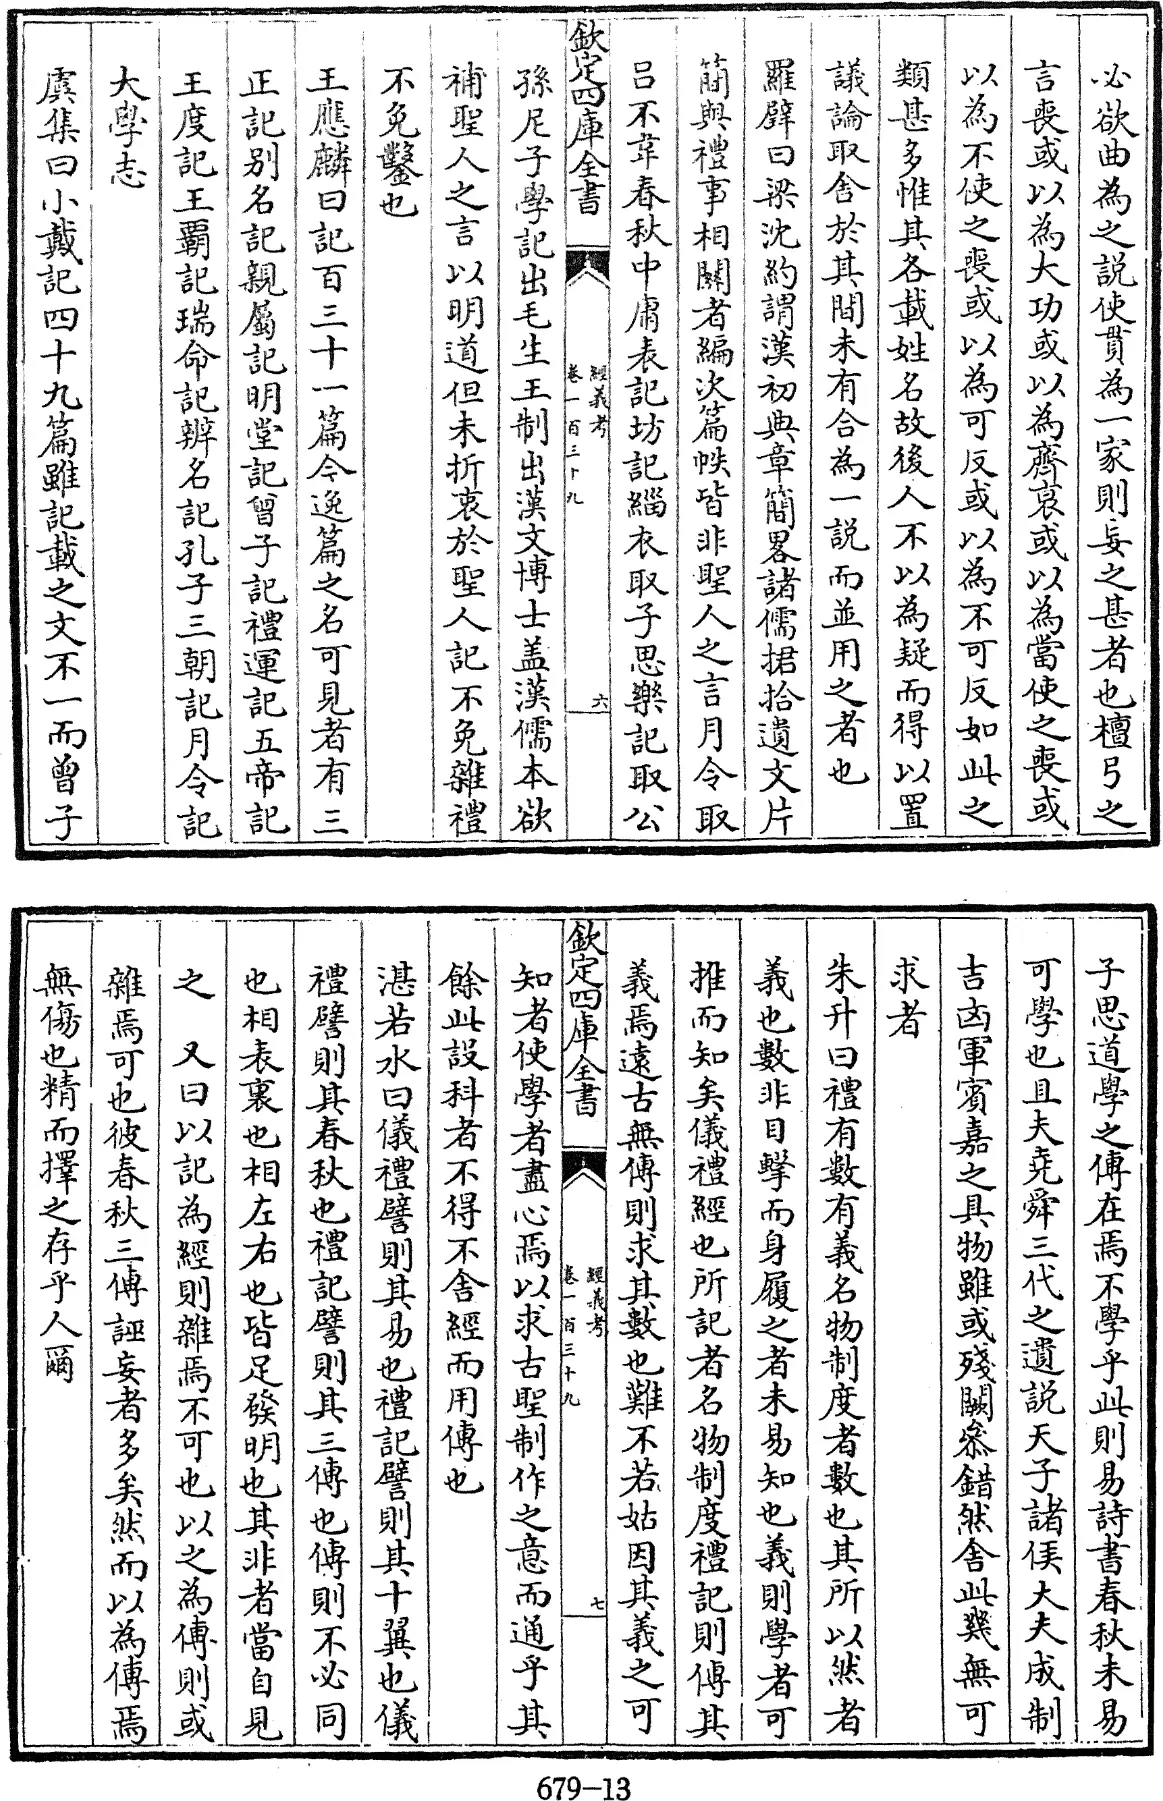 必欲曲為之説使貫為一家則妄之甚者也檀弓之
言喪或以為大功或以為齊衰或以為當使之喪或
以為不使之喪或以為可反或以為不可反如此之
類甚多惟其各載姓名故後人不以為疑而得以置
議論取舍於其間未有合為一説而並用之者也
羅璧曰梁沈約謂漢初典章簡畧諸儒捃拾遺文片
簡與禮事相關者編次篇帙皆非聖人之言月令取
吕不韋春秋中庸表記坊記緇衣取子思樂記取公
欽定四庫全書
經義考
卷一百三十九
六
孫尼子學記出毛生王制出漢文博士盖漢儒本欲
補聖人之言以明道但未折衷於聖人記不免雜禮
不免鑿也
王應麟曰記百三十一篇今逸篇之名可見者有三
正記别名記親屬記明堂記曾子記禮運記五帝記
王度記王霸記瑞命記辨名記孔子三朝記月令記
大學志
虞集曰小戴記四十九篇雖記載之文不一而曾子
子思道學之傳在焉不學乎此則易詩書春秋未易
可學也且夫堯舜三代之遺説天子諸侯大夫成制
吉凶軍賓嘉之具物雖或殘闕叅錯然舍此幾無可
求者
朱升曰禮有數有義名物制度者數也其所以然者
義也數非目擊而身履之者未易知也義則學者可
推而知矣儀禮經也所記者名物制度禮記則傳其
義焉遠古無傳則求其數也難不若姑因其義之可
欽定四庫全書
經義考
卷一百三十九
七
知者使學者盡心焉以求古聖制作之意而通乎其
餘此設科者不得不舍經而用傳也
湛若水曰儀禮譬則其易也禮記譬則其十翼也儀
禮譬則其春秋也禮記譬則其三傳也傳則不必同
也相表裏也相左右也皆足發明也其非者當自見
之　又曰以記為經則雜焉不可也以之為傳則或
雜焉可也彼春秋三傳誣妄者多矣然而以為傳焉
無傷也精而擇之存乎人爾
679-13